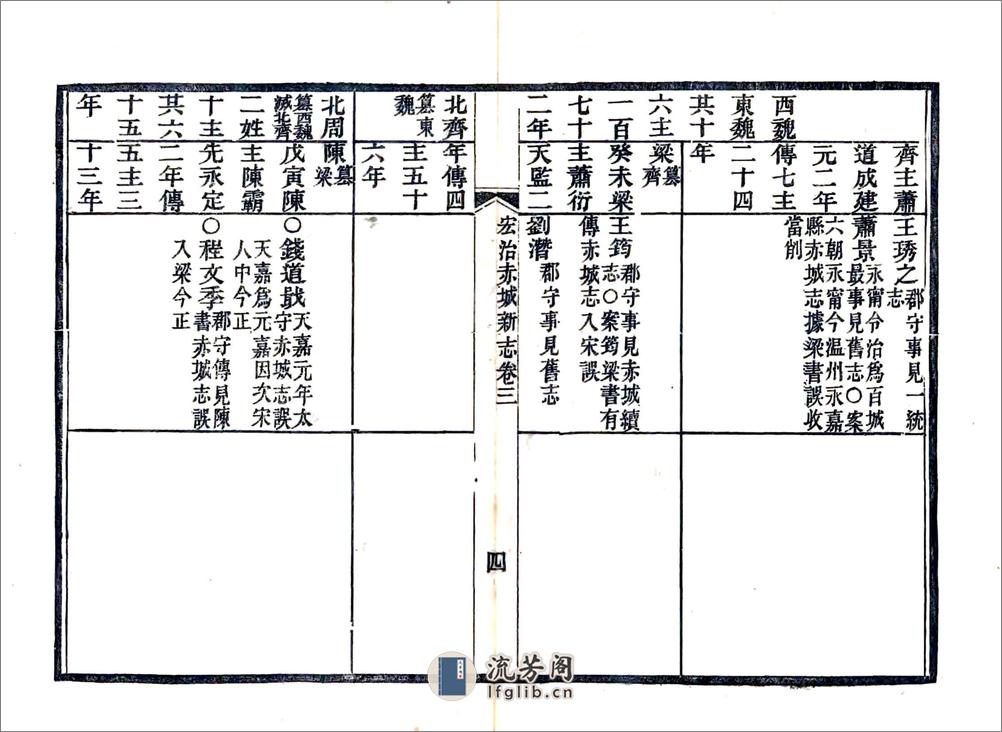 齊主蕭
王琇之郡守事見一統
志
道成建
蕭景永甯令治爲百城
最事見舊志○案
元二年
六朝永甯今温州永嘉
縣赤城志據梁書誤收
當削
西魏
傳七主
東魏
二十四
其十
年
六主
梁簒齊
一百
癸未梁
王筠郡守事見赤城續
志○案筠梁書有
七十
主蕭衍
傳赤城志入宋誤
二年
天監二
劉潛郡守事見舊志
宏治赤城新志卷三
四
北齊
年傳四
簒東
魏
主五十
六年
北周
陳簒梁
簒西魏
滅北齊
戊寅陳
○錢道戢天嘉元年太
守赤城志誤
二姓
主陳霸
天嘉爲元嘉因次宋
人中今正
十主
先永定
○程文季郡守傳見陳
書赤城志誤
其六
二年傳
入梁今正
十五
五主三
年
十三年
流芳阁
lfglib.cn